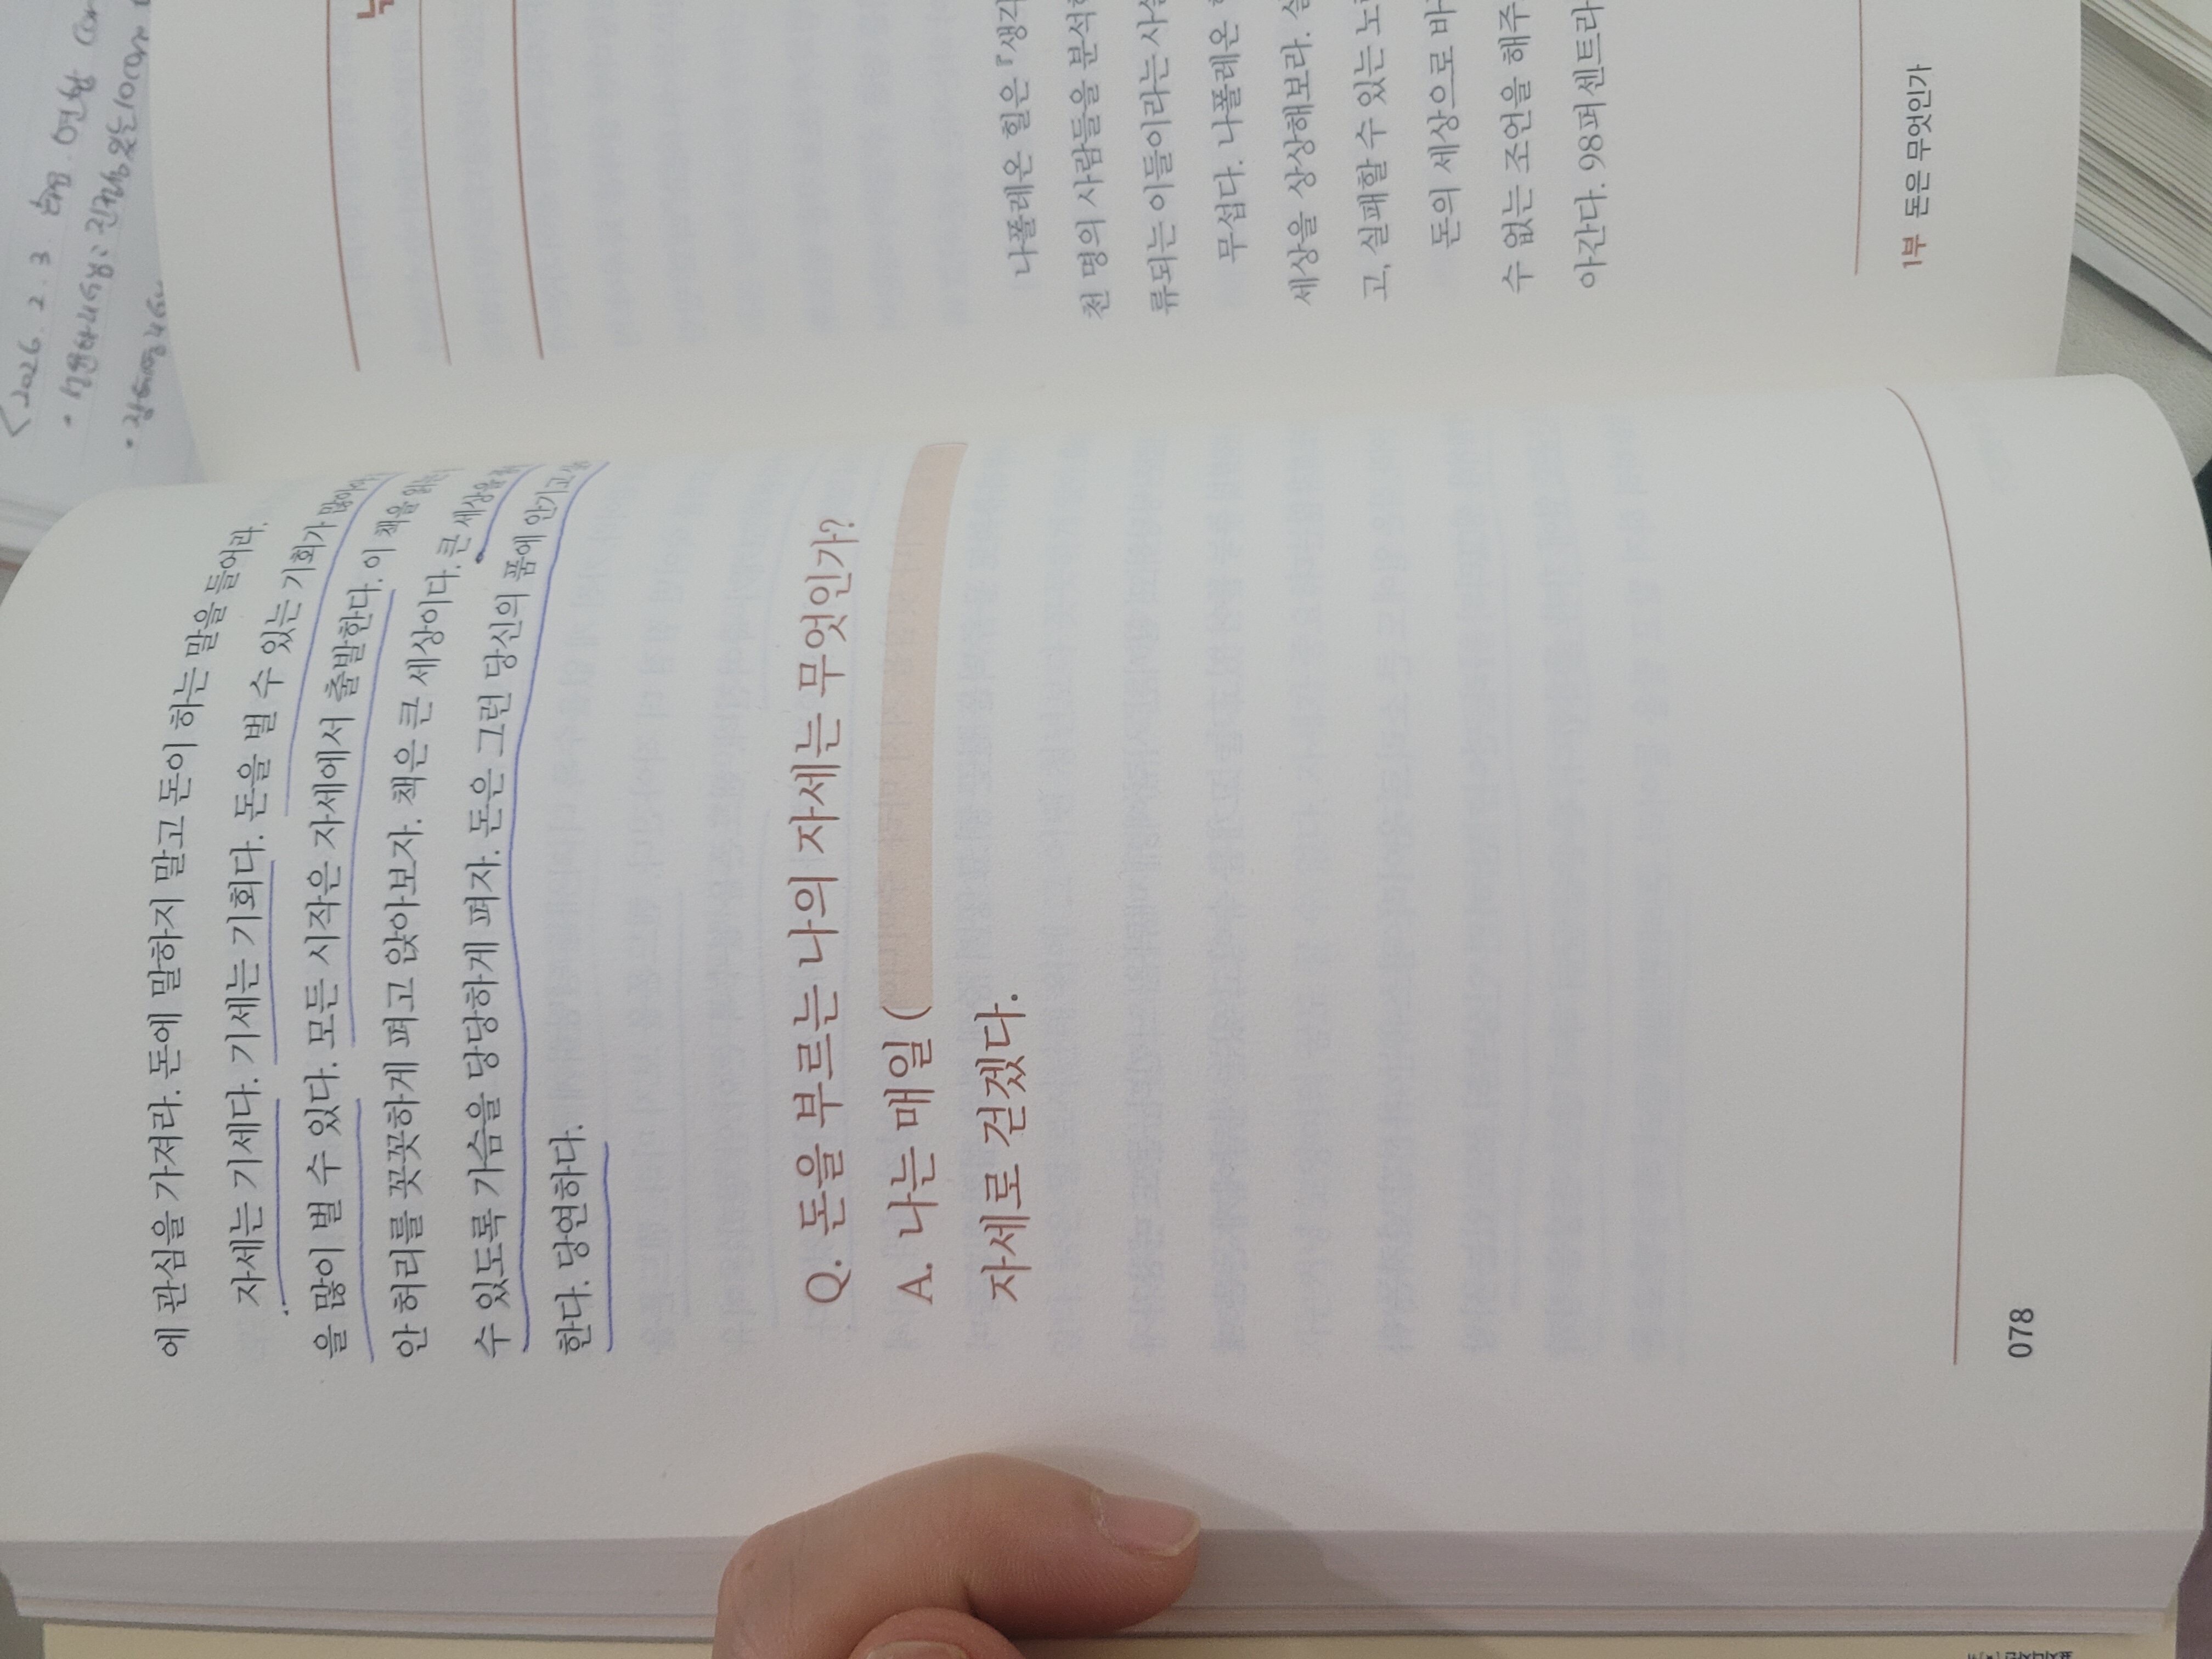 에 관심을 가져라. 돈에 말하지 말고 돈이 하는 말을 들어라.
자세는 기세다. 기세는 기회다. 돈을 벌 수 있는 기회가 많아야
을 많이 벌 수 있다. 모든 시작은 자세에서 출발한다. 이 책을 읽는
안 허리를 꼿꼿하게 펴고 앉아보자. 책은 큰 세상이다. 큰 세상을
수 있도록 가슴을 당당하게 펴자. 돈은 그런 당신의 품에 안기고
한다. 당연하다.
Q. 돈을 부르는 나의 자세는 무엇인가?
A. 나는 매일 (
자세로 걷겠다.
078
나폴레온 힐은 『생각
천 명의 사람들을 분석
류되는 이들이라는 사실
무섭다. 나폴레온
세상을 상상해보라.
고, 실패할 수 있는
돈의 세상으로
수 없는 조언을 해주
아간다. 98퍼센트라
1부 돈은 무엇인가
2026. 2. 3